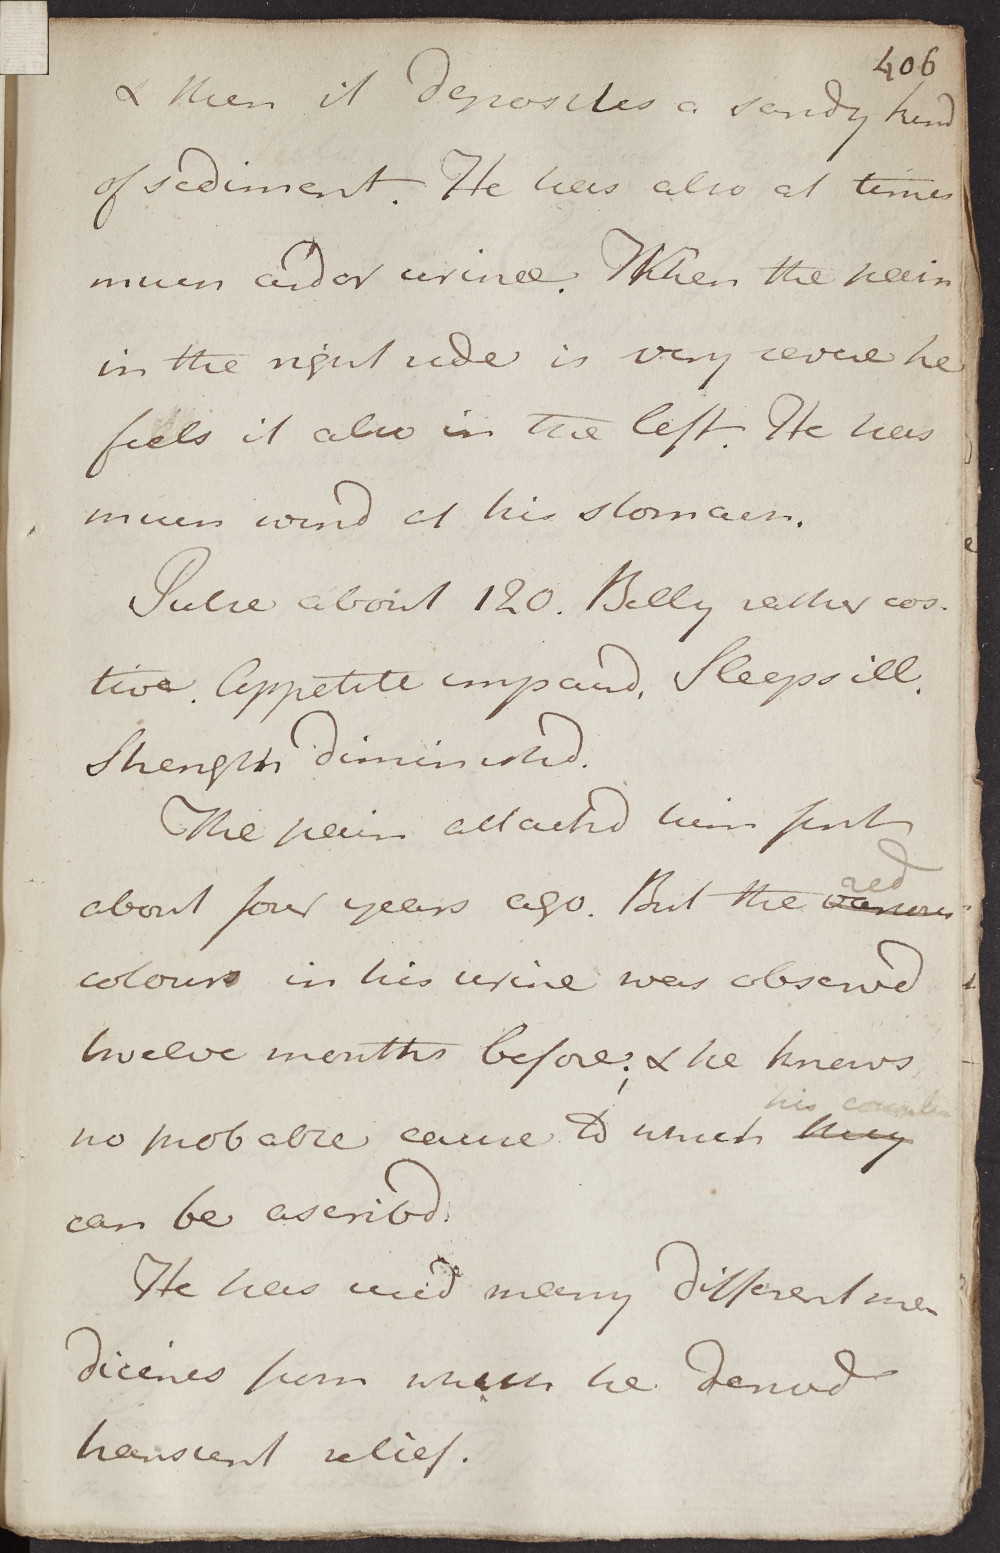 406
& then it deposites a sandy kind
of sediment. He has also at times
much ardor urinæ. When the pain
in the right side is very severe he
feels it also in the left. He has
much wind at his stomach.
Pulse about 120. Belly rather cos-
tive. Appetite impaird. Sleeps ill.
Strength diminishd.
The pain attackd him first
red
about four years ago. But the various
colours in his urine was observd
twelve months before; & he knows
his complts
no probable cause to which they
can be ascribd.
He has used many different me
dicines from which he derivd
transient relief.